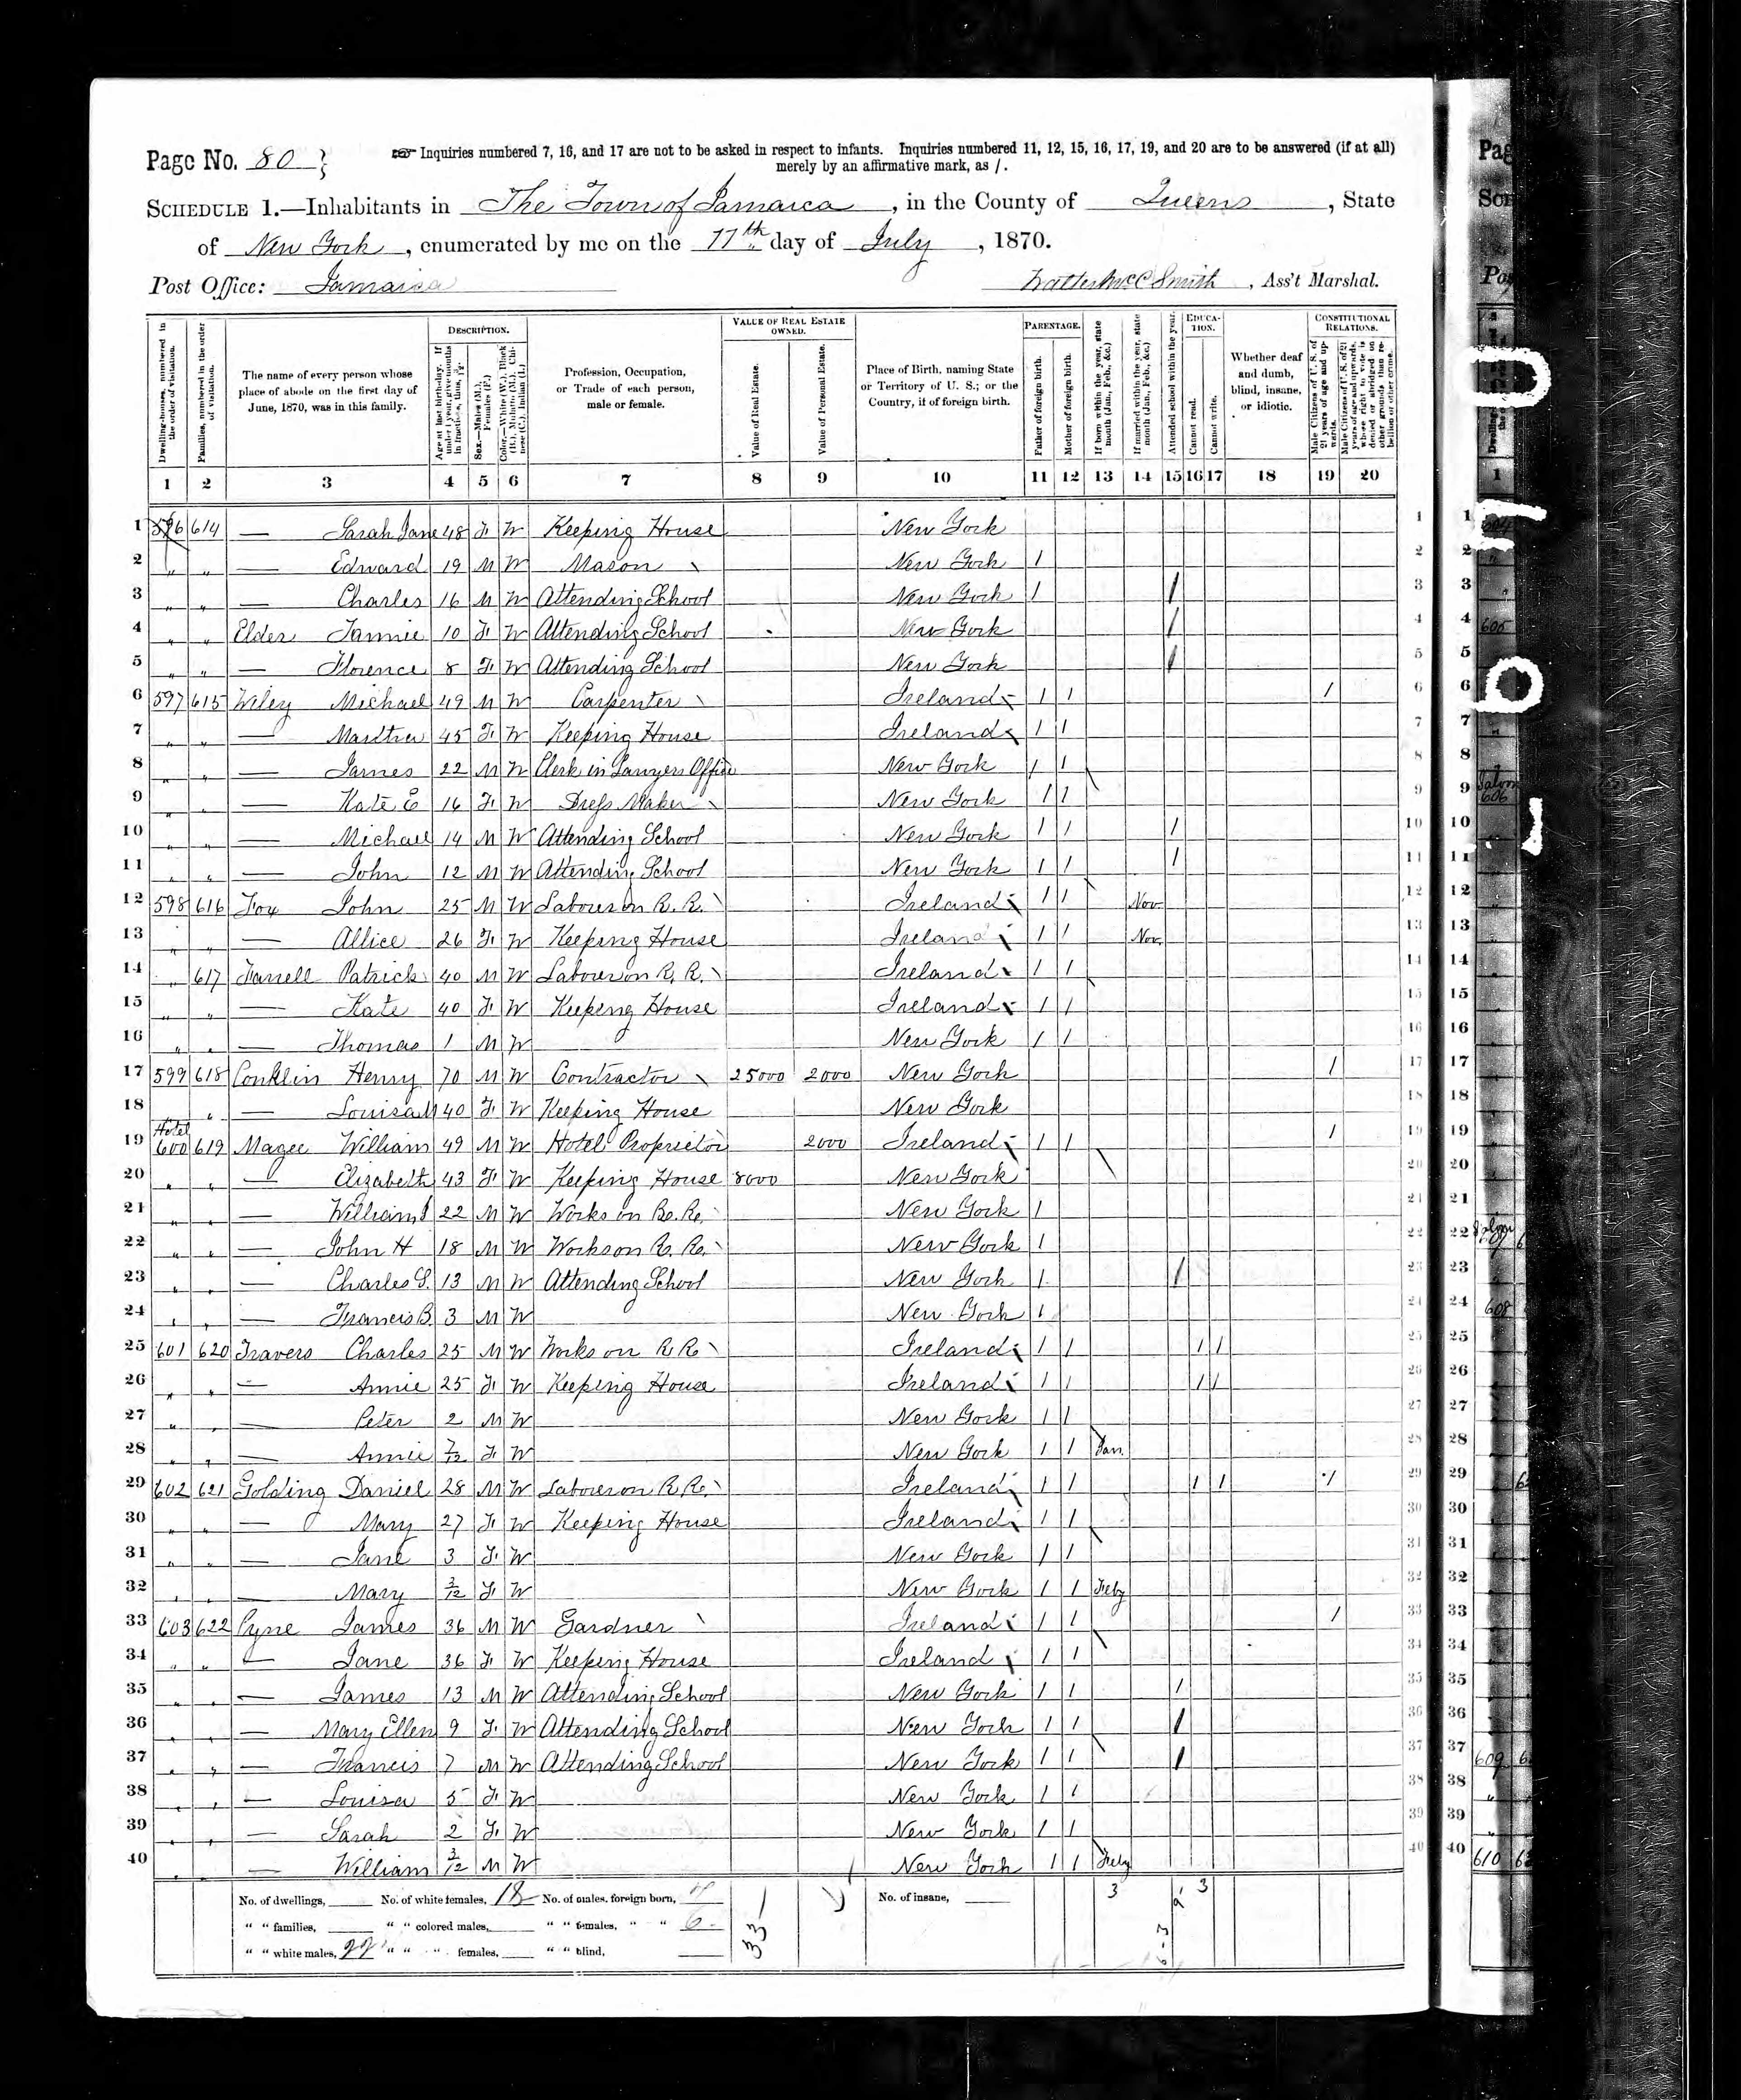 Page No. 80
Inquiries numbered 7, 16, and 17 are not to be asked in respect to infants. Inquiries numbered 11, 12, 15, 16, 17, 19, and 20 are to be answered (if at all)
merely by an affirmative mark, as /.
SCHEDULE 1.—Inhabitants in The Town of Jamaica, in the County of Queens, State
of New York, enumerated by me on the 17th day of July, 1870.
Post Office: Jamaica
McC Smith, Ass't Marshal.
Dwelling-houses, numbered in the order of visitation.
Families, numbered in the order of visitation.
The name of every person whose place of abode on the first day of June, 1870, was in this family.
DESCRIPTION.
Age at last birth-day. If under 1 year, give months in fractions, thus, 3/12.
Sex.—Males (M.), Females (F.)
Color.—White (W.), Black (B.), Mulatto (M.), Chinese (C.), Indian (I.)
Profession, Occupation, or Trade of each person, male or female.
VALUE OF REAL ESTATE OWNED.
Value of Real Estate.
Value of Personal Estate.
Place of Birth, naming State or Territory of U. S.; or the Country, if of foreign birth.
PARENTAGE.
Father of foreign birth.
Mother of foreign birth.
If born within the year, state month (Jan., Feb., &c.)
If married within the year, state month (Jan., Feb., &c.)
Attended school within the year.
EDUCATION.
Cannot read.
Cannot write.
Whether deaf and dumb, blind, insane, or idiotic.
CONSTITUTIONAL RELATIONS.
Male Citizens of U. S. of 21 years of age and upwards.
Male Citizens of U. S. of 21 years of age and upwards, whose right to vote is denied or abridged on other grounds than rebellion or other crime.
1 2 3 4 5 6 7 8 9 10 11 12 13 14 15 16 17 18 19 20
1 596 614 — Sarah Jane 48 F W Keeping House New York 1
2 " " — Edward 19 M W Mason New York 1 2
3 " " — Charles 16 M W Attending School New York 1 / 3
4 " " Elder Fannie 10 F W Attending School New York / 4
5 " " — Florence 8 F W Attending School New York / 5
6 597 615 Wiley Michael 49 M W Carpenter Ireland 1 1 1 6
7 " " — Martha 45 F W Keeping House Ireland 1 1 7
8 " " — James 22 M W Clerk in Lawyers Office New York 1 1 8
9 " " — Kate E 16 F W Dress Maker New York 1 1 9
10 " " — Michael 14 M W Attending School New York 1 1 1 10
11 " " — John 12 M W Attending School New York 1 1 1 11
12 598 616 Fox John 25 M W Labour on R. R. Ireland 1 1 Nov. 12
13 " " — Allice 26 F W Keeping House Ireland 1 1 Nov. 13
14 " 617 Farrell Patrick 40 M W Labour on R. R. Ireland 1 1 14
15 " " — Kate 40 F W Keeping House Ireland 1 1 15
16 " " — Thomas 1 M W New York 1 1 16
17 599 618 Conklin Henry 70 M W Contractor 25000 2000 New York 1 17
18 " — Louisa M 40 F W Keeping House New York 18
Hotel
19 600 619 Magee William 49 M W Hotel Proprietor 2000 Ireland 1 1 1 19
20 " " — Elizabeth 43 F W Keeping House 8000 New York 20
21 " " — William J 22 M W Works on R. R. New York 1 21
22 " " — John H 18 M W Works on R. R. New York 1 22
23 " " — Charles S. 13 M W Attending School New York 1 / 23
24 " " — Francis B. 3 M W New York 1 24
25 601 620 Travers Charles 25 M W Works on R R Ireland 1 1 1 1 25
26 " " — Annie 25 F W Keeping House Ireland 1 1 1 1 26
27 " " — Peter 2 M W New York 1 1 27
28 " " — Annie 7/12 F W New York 1 1 Jan. 28
29 602 621 Golding Daniel 28 M W Labour on R. R. Ireland 1 1 1 1 1 29
30 " " — Mary 27 F W Keeping House Ireland 1 1 30
31 " " — Jane 3 F W New York 1 1 31
32 " " — Mary 3/12 F W New York 1 1 Feby 32
33 603 622 Pyne James 36 M W Gardner Ireland 1 1 1 33
34 " " — Jane 36 F W Keeping House Ireland 1 1 34
35 " " — James 13 M W Attending School New York 1 1 1 35
36 " " — Mary Ellen 9 F W Attending School New York 1 1 / 36
37 " " — Francis 7 M W Attending School New York 1 1 / 37
38 " " — Louisa 5 F W New York 1 1 38
39 " " — Sarah 2 F W New York 1 1 39
40 " — William 3/12 M W New York 1 1 Feby 40
No. of dwellings, No. of white females, 18 No. of males, foreign born, No. of insane, 3 3
" " families, " " colored males, " " females, " " 6
" " white males, 22 " " " females, " " blind,
33